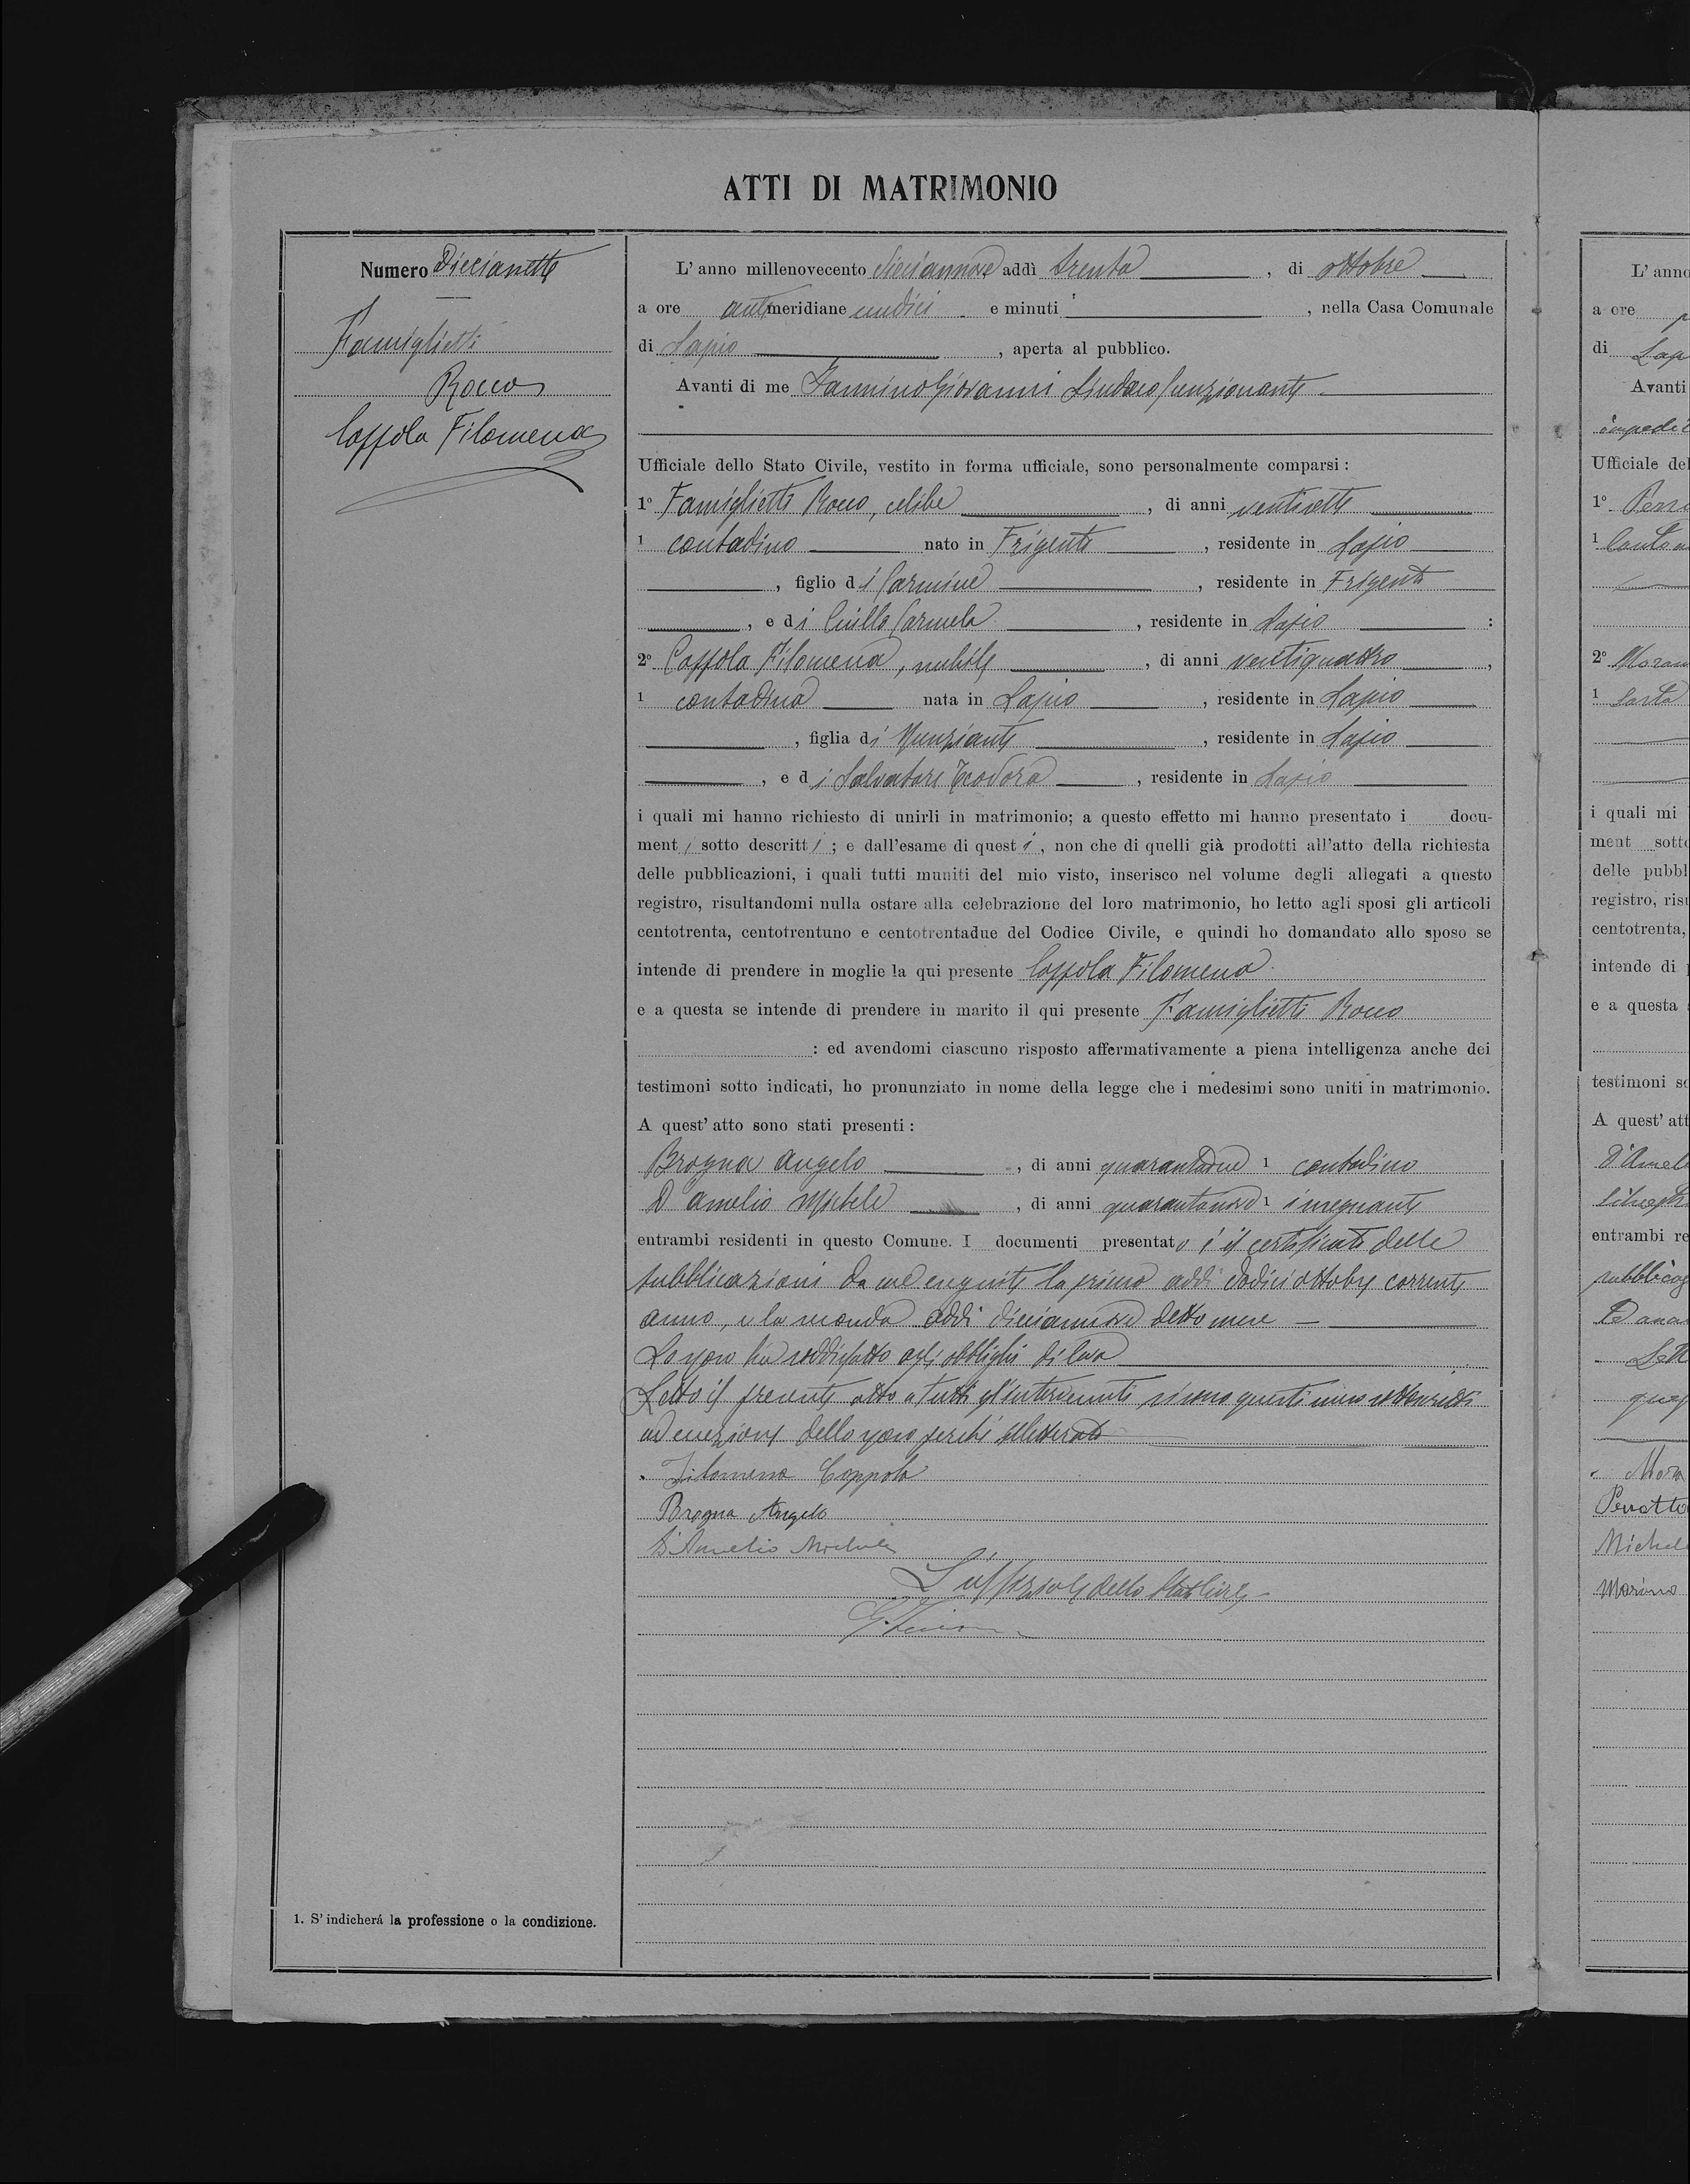 ATTI DI MATRIMONIO
Numero Diecisette
Famiglietti
Rocco
Coppola Filomena
L' anno millenovecento diciannove addì trenta, di ottobre
a ore antimeridiane undici e minuti, nella Casa Comunale
di Lapio, aperta al pubblico.
Avanti di me Giovanni Sindaco funzionante
Ufficiale dello Stato Civile, vestito in forma ufficiale, sono personalmente comparsi :
1° Famiglietti Rocco, celibe, di anni ventisette
1 contadino nato in Frigento, residente in Lapio
, figlio di Carmine, residente in Frigento
, e di Ciullo Carmela, residente in Lapio :
2° Coppola Filomena, nubile, di anni ventiquattro,
1 contadina nata in Lapio, residente in Lapio
, figlia di Nunziante, residente in Lapio
, e di Salvatore Teodora, residente in Lapio
i quali mi hanno richiesto di unirli in matrimonio; a questo effetto mi hanno presentato i docu-
menti sotto descritti ; e dall'esame di questi, non che di quelli già prodotti all'atto della richiesta
delle pubblicazioni, i quali tutti muniti del mio visto, inserisco nel volume degli allegati a questo
registro, risultandomi nulla ostare alla celebrazione del loro matrimonio, ho letto agli sposi gli articoli
centotrenta, centotrentuno e centotrentadue del Codice Civile, e quindi ho domandato allo sposo se
intende di prendere in moglie la qui presente Coppola Filomena
e a questa se intende di prendere in marito il qui presente Famiglietti Rocco
: ed avendomi ciascuno risposto affermativamente a piena intelligenza anche dei
testimoni sotto indicati, ho pronunziato in nome della legge che i medesimi sono uniti in matrimonio.
A quest' atto sono stati presenti :
Brogna Angelo, di anni quarantadue 1 contadino
D'Amelio Michele, di anni quarantanove 1 insegnante
entrambi residenti in questo Comune. I documenti presentato è il certificato delle
pubblicazioni da me eseguite la prima addì dodici ottobre corrente
anno, e la seconda addì diciannove detto mese
Lo sposo ha soddisfatto agli obblighi di leva
Letto il presente atto a tutti gl'intervenuti si sono questi meco sottoscritti
ad eccezione dello sposo perchè illetterato
Filomena Coppola
Brogna Angelo
D'Amelio Michele
L'uffiziale dello Stato Civile
1. S' indicherá la professione o la condizione.
L' anno
a ore
di Lap
Avanti
impedi
Ufficiale del
1°
1
2°
1
i quali mi
ment sotto
delle pubbl
registro, risu
centotrenta,
intende di
e a questa
testimoni so
A quest' att
D'Amel
entrambi re
pubblicaz
Michel
Marino